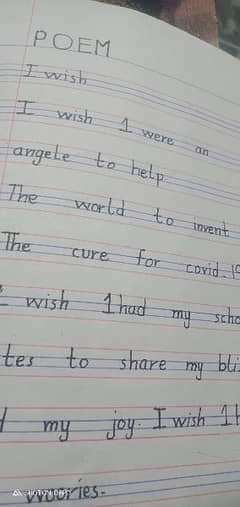 POEM
I wish
I wish 1 were an
angele to help.
The world to invent
The cure for covid.19
I wish 1had my scho
tes to share my bli
my joy. I wish 1
woories.